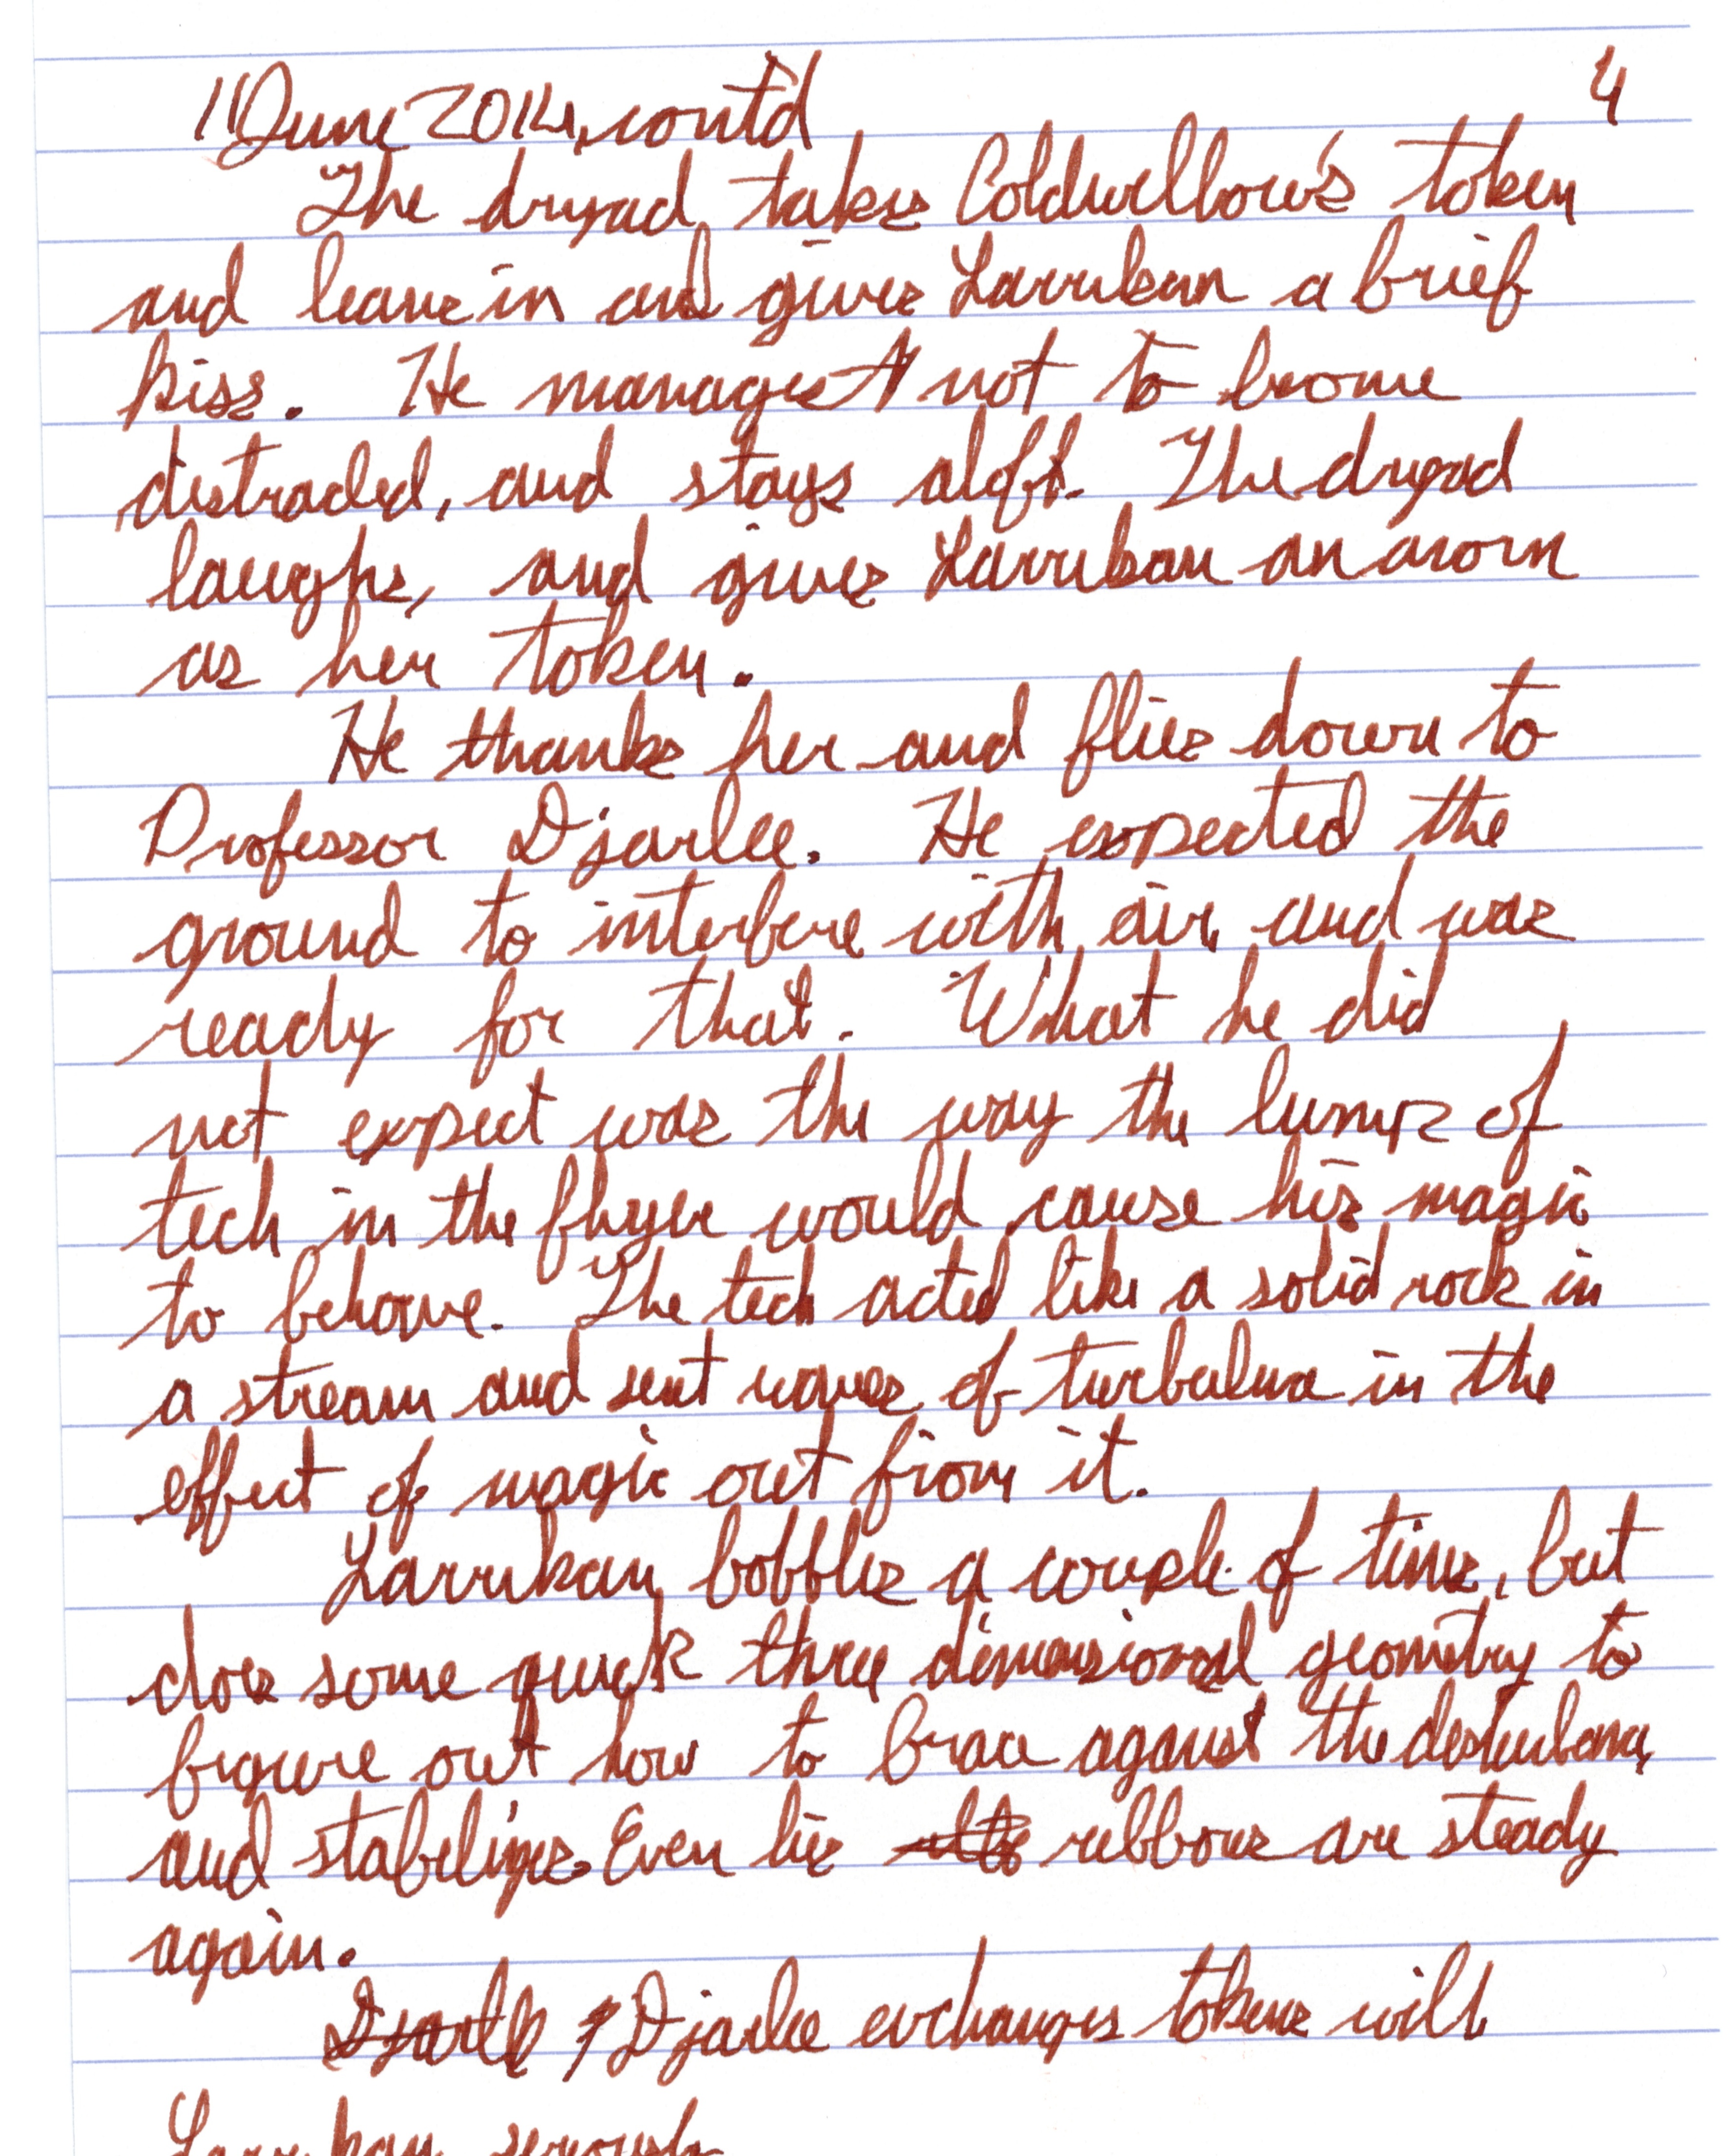 11 June 2014, contd 4
The dryad takes Coldwellbow's token
and leans in and gives Larrikan a brief
kiss. He manages not to become
distracted, and stays aloft. The dryad
laughs, and gives Larrikan an acorn
as her token.
He thanks her and flies down to
Professor Djarlee. He expected the
ground to interfere with air, and was
ready for that. What he did
not expect was the way the lumps of
tech in the flyer would cause his magic
to behave. The tech acted like a solid rock in
a stream and sent waves of turbulence in the
effect of magic out from it.
Larrikan bobbles a couple of times, but
does some quick three dimensional geometry to
figure out how to brace against the disturbance,
and stabilizes. Even his ribbons are steady
again.
Djarlee exchanges tokens with
Larrikan seriously